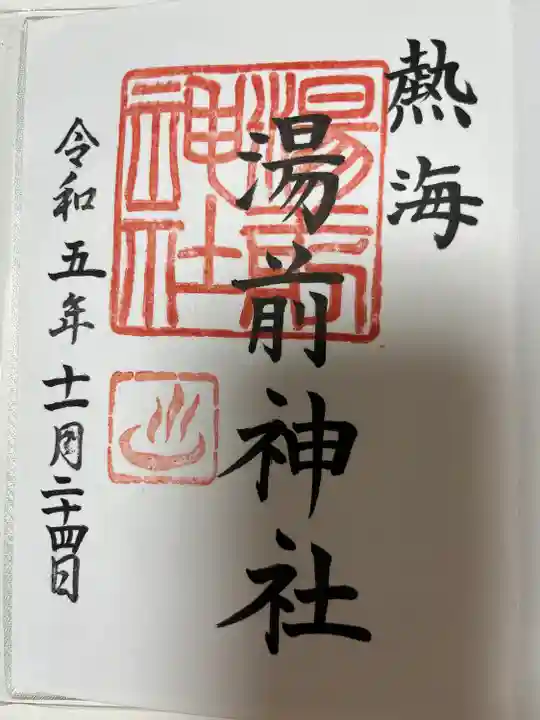 熱海
湯前神社
令和五年十一月二十四日
湯前神社